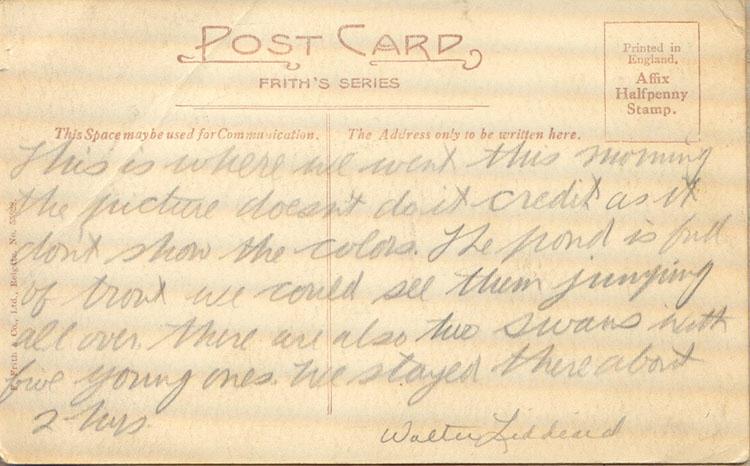 POST CARD
FRITH'S SERIES
Printed in
England.
Affix
Halfpenny
Stamp.
This Space may be used for Communication.
The Address only to be written here.
This is where we went this morning
the picture doesn't do it credit as it
dont show the colors. The pond is full
of trout we could see them jumping
all over. There are also two swans with
five young ones. We stayed there about
2 hrs.
Walter Liddiard
Frith & Co., Ltd., Reigate. No.